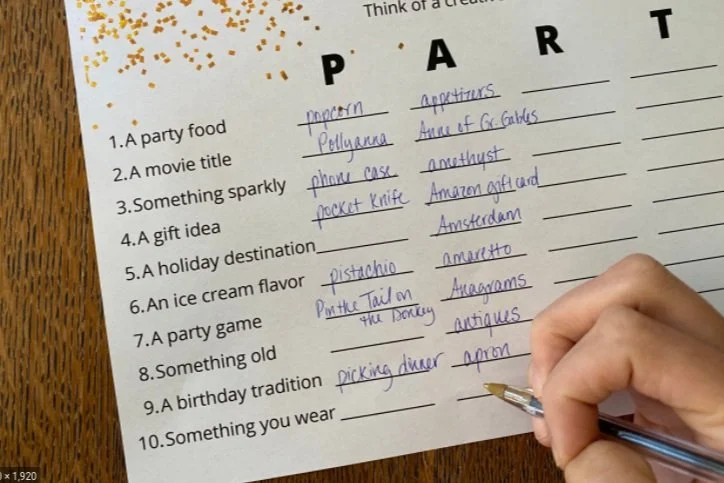 Think of a creativ
P A R T
1.A party food popcorn appetizers
2.A movie title Pollyanna Anne of Gr. Gables
3.Something sparkly phone case amethyst
4.A gift idea pocket knife Amazon giftcard
5.A holiday destination Amsterdam
6.An ice cream flavor pistachio amaretto
7.A party game Pin the Tail on the Donkey Anagrams
8.Something old antiques
9.A birthday tradition picking dinner apron
10.Something you wear
× 1,920